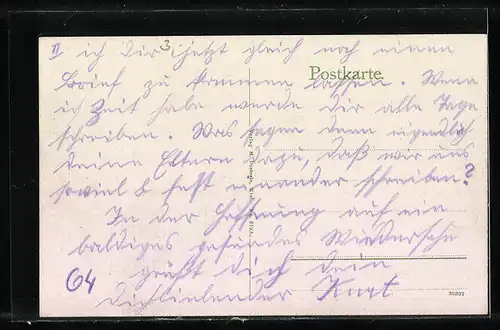 II ich dir 3 jetzt gleich noch einen
Brief zu kommen lassen. Wenn
Postkarte.
ich Zeit habe werde dir alle Tage
schreiben. Was sagen denn eigendlich
deine Eltern dazu, daß wir uns
soviel & fest einander schreiben?
In der Hoffnung auf ein
baldiges gesundes Wiedersehn
64 grüßt dich dein
dichliebender Kurt